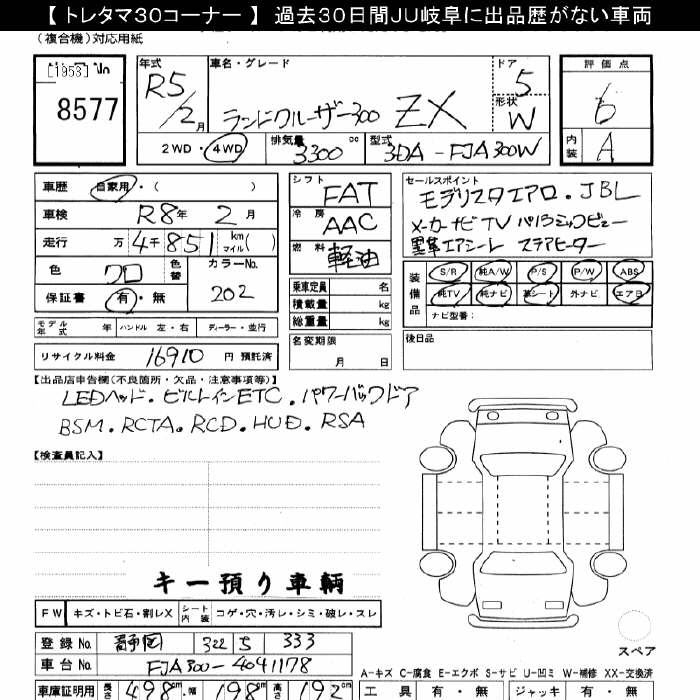 【 トレタマ30コーナー 】 過去30日間JU岐阜に出品歴がない車両
(複合機)対応用紙
[1953] No
8577
年式
R5/2月
車名・グレード
ランドクルーザー300 ZX
ドア
5
形状
W
評価点
6
内装
A
2WD・4WD
排気量
3300 cc
型式
3DA-FJA300W
車歴 自家用・( )
車検 R8年 2月
走行 万 4千 851 km マイル( )
色 クロ 色替 カラーNo. 202
保証書 有・無
モデル年式 年 ハンドル 左・右 ディーラー・並行
リサイクル料金 16910 円 預託済
シフト FAT
冷房 AAC
燃料 軽油
乗車定員 名
積載量 kg
総重量 kg
名変期限
月 日
セールスポイント
モデリスタエアロ・JBL
メーカーナビTV パノラミックビュー
黒革エアシート ステアヒーター
装備品
S/R 純A/W P/S P/W ABS
純TV 純ナビ 革シート 外ナビ エアB
ナビ型番:
後日品
【出品店申告欄(不良箇所・欠品・注意事項等)】
LEDヘッド・ビルトインETC・パワーバックドア
BSM・RCTA・RCD・HUD・RSA
【検査員記入】
キー預り車輌
FW キズ・トビ石・割レX シート内装 コゲ・穴・汚レ・シミ・破レ・スレ
登録No. 静岡 322 5 333
車台No. FJA300-4041178
車庫証明用 長さ 498cm 幅 198cm 高さ 192cm
スペア
A-キズ C-腐食 E-エクボ S-サビ U-凹ミ W-補修 XX-交換済
工具 有・無 ジャッキ 有・無